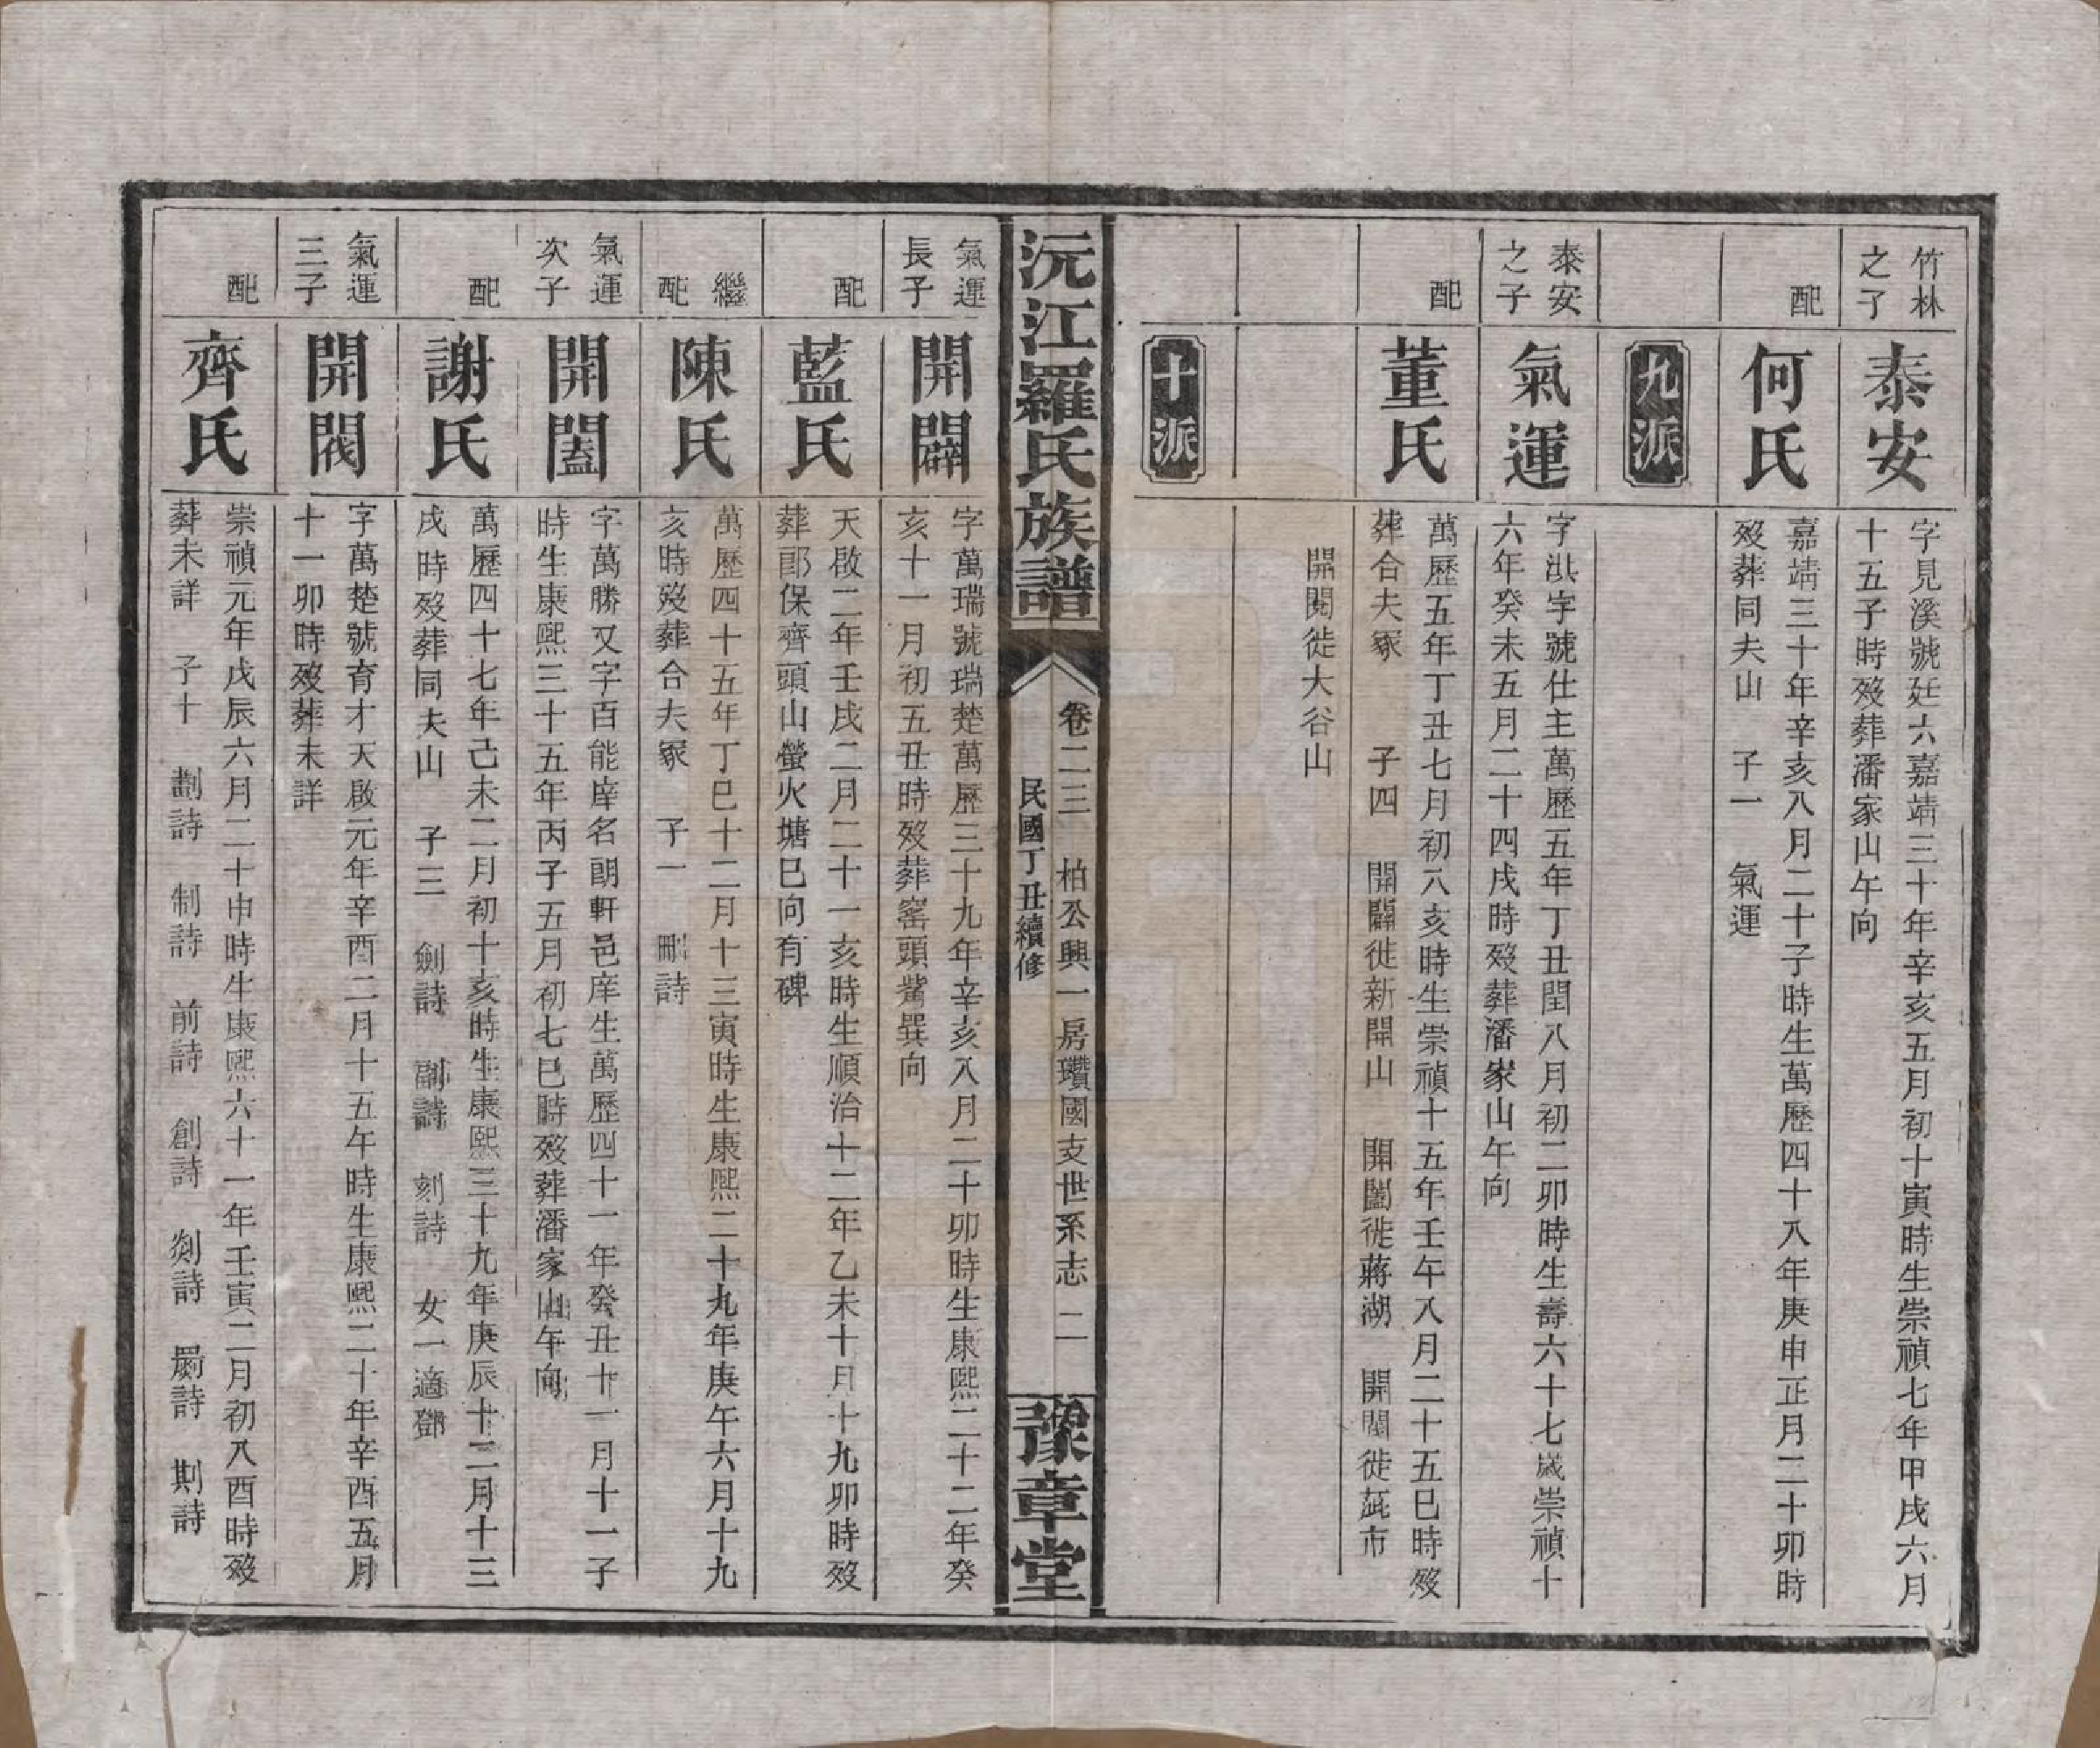 竹林
之子
泰安
字見溪號廷六嘉靖三十年辛亥五月初十寅時生崇禎七年甲戌六月
十五子時歿葬潘家山午向
配
何氏
嘉靖三十年辛亥八月二十子時生萬歷四十八年庚申正月二十卯時
歿葬同夫山　子一　氣運
九派
泰安
之子
氣運
字洪宇號仕主萬歷五年丁丑閏八月初二卯時生壽六十七歲崇禎十
六年癸未五月二十四戌時歿葬潘家山午向
配
董氏
萬歷五年丁丑七月初八亥時生崇禎十五年壬午八月二十五巳時歿
葬合夫冢　子四　開闢徙新開山　開闔徙蔣湖　開閣徙茈市
開閱徙大谷山
十派
沅江羅氏族譜
卷二三　柏公興一房瓚國支世系志　二
民國丁丑續修
豫章堂
氣運
長子
開闢
字萬瑞號瑞楚萬歷三十九年辛亥八月二十卯時生康熙二十二年癸
亥十一月初五丑時歿葬窰頭觜巽向
配
藍氏
天啟二年壬戌二月二十一亥時生順治十二年乙未十月十九卯時歿
葬郎保齊頭山螢火塘巳向有碑
繼
配
陳氏
萬歷四十五年丁巳十二月十三寅時生康熙二十九年庚午六月十九
亥時歿葬合夫冢　子一　刪詩
氣運
次子
開闔
字萬勝又字百能庠名朗軒邑庠生萬歷四十一年癸丑十一月十一子
時生康熙三十五年丙子五月初七巳時歿葬潘家山午向
配
謝氏
萬歷四十七年己未二月初十亥時生康熙三十九年庚辰十二月十三
戌時歿葬同夫山　子三　劍詩　副詩　刻詩　女一適鄧
氣運
三子
開閣
字萬楚號育才天啟元年辛酉二月十五午時生康熙二十年辛酉五月
十一卯時歿葬未詳
配
齊氏
崇禎元年戊辰六月二十申時生康熙六十一年壬寅二月初八酉時歿
葬未詳　子十　劃詩　制詩　前詩　創詩　剡詩　罽詩　剘詩